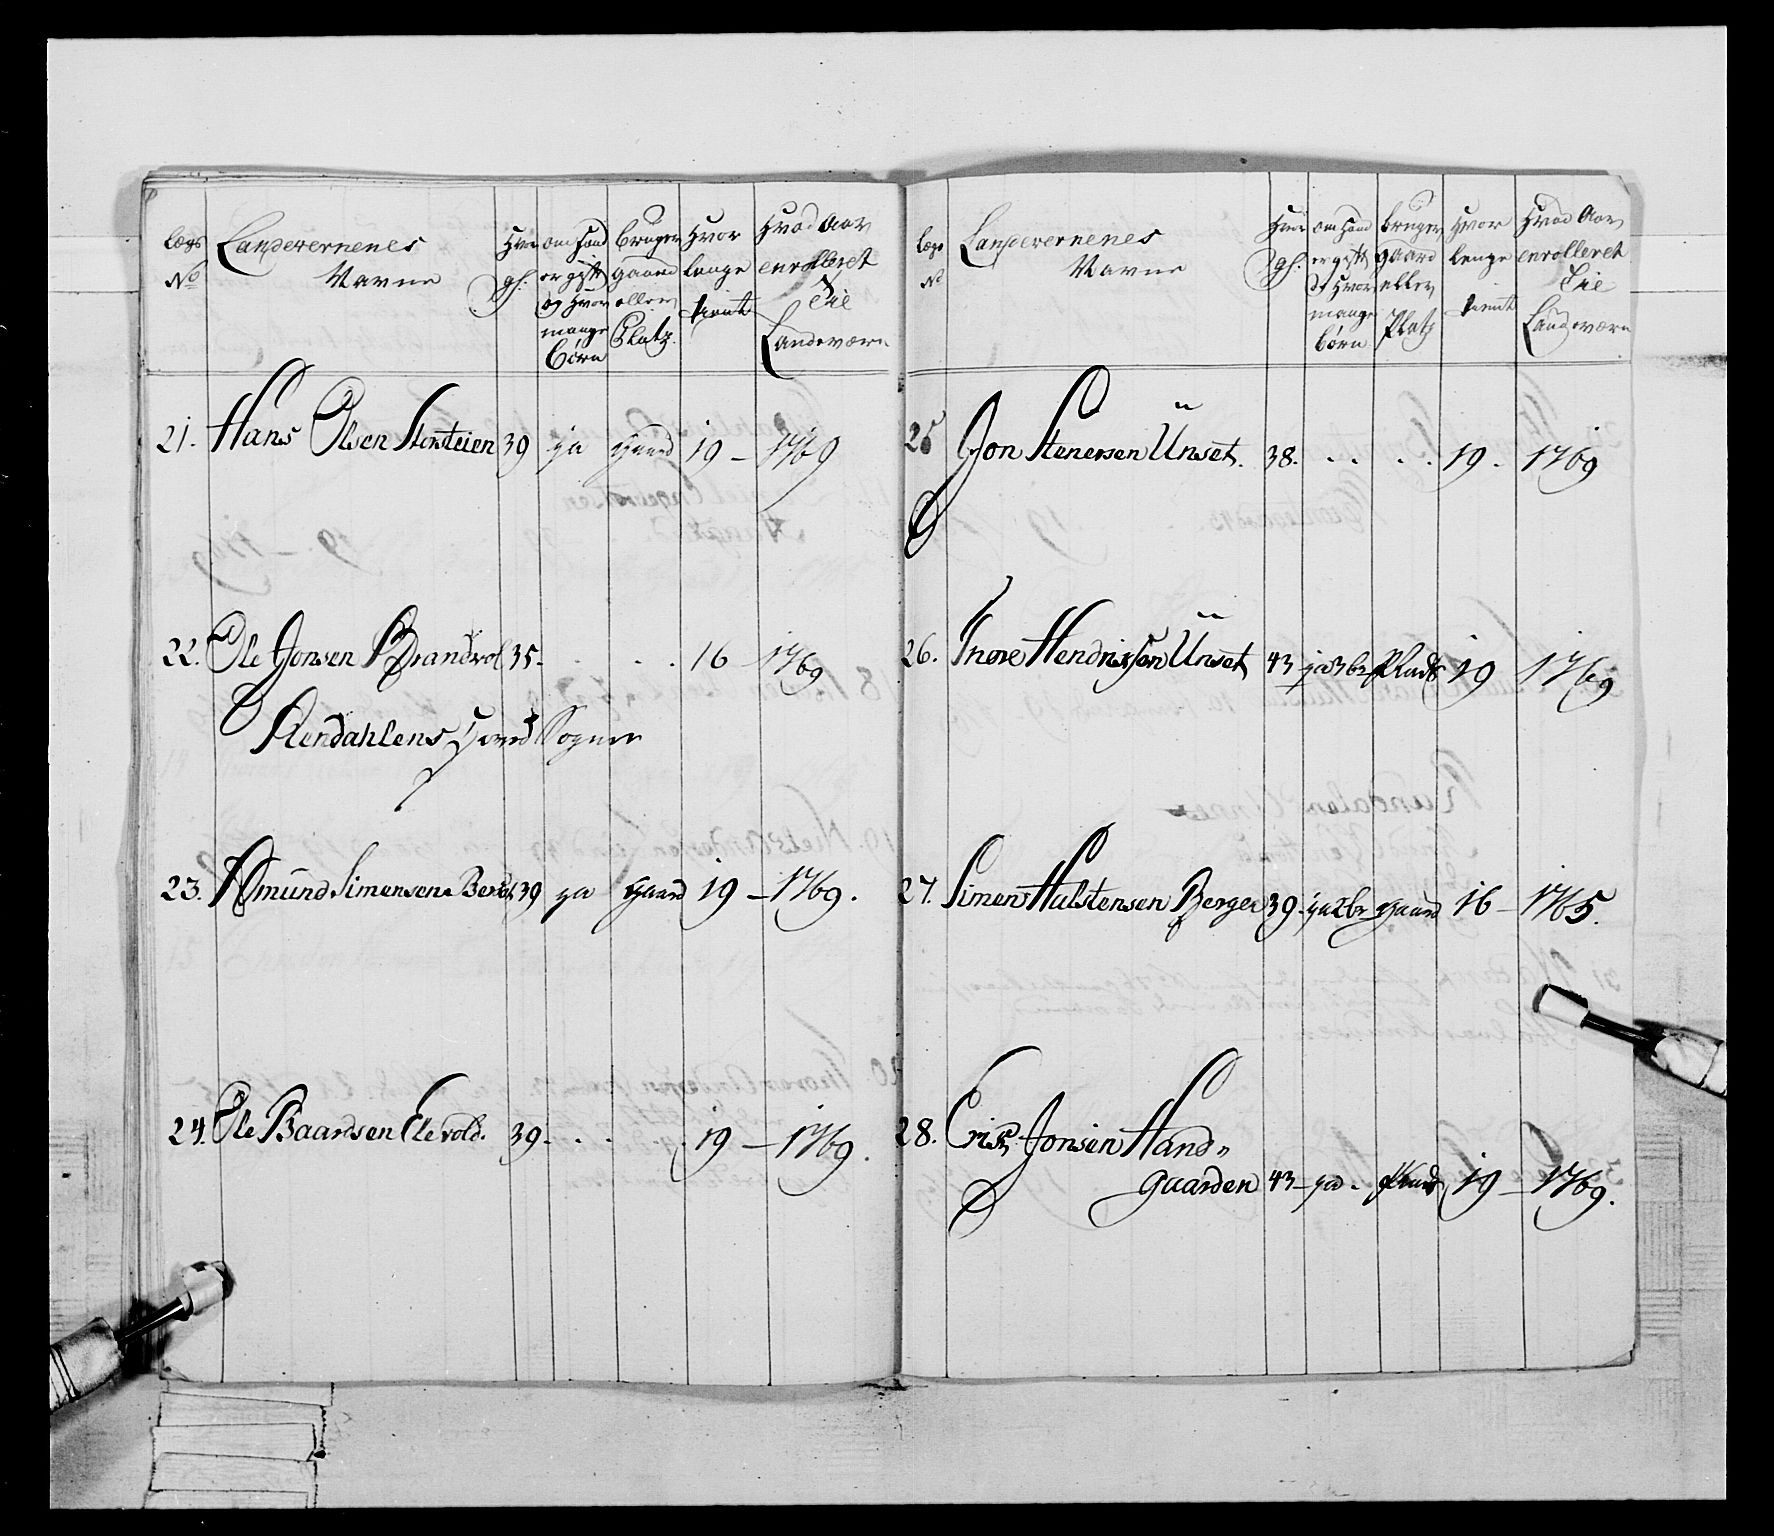 Lægs No | Landevernenes Navne | Hvor gl: | om Hand er gift og Hvor mange børn | bruger gaard eller Platz. | Hvor lenge tient | Hvad Aar enrolleret Til Landeværn
21. Hans Olsen Storsteien 39 ja gaard 19 – 1769
22. Ole Jonsen Brandvol 35. . . . 16 – 1769
Rendahlens Hoved Sogn
23. Amund Simensen Berset 39 ja gaard 19 – 1769.
24. Ole Baardsen Elevold. 39. . . . 19 – 1769.
Læge No | Landevernenes Navne | Hvor gl: | om Hand er gift og Hvor mange børn | bruger gaard eller Platz | Hvor lenge tient | Hvad Aar enrolleret Til Landeværn
25 Jon Stenersen Unset. 38. . . . . 19. 1769
26. Hendrichsen Unset 43 ja 3 br Plads 19 1769
27. Simen Halstensen Berger 39 ja 2 br gaard 16 – 1765.
28. Erich Jonsen Hand„
gaarden 43 – ja. Plads 19 – 1769.